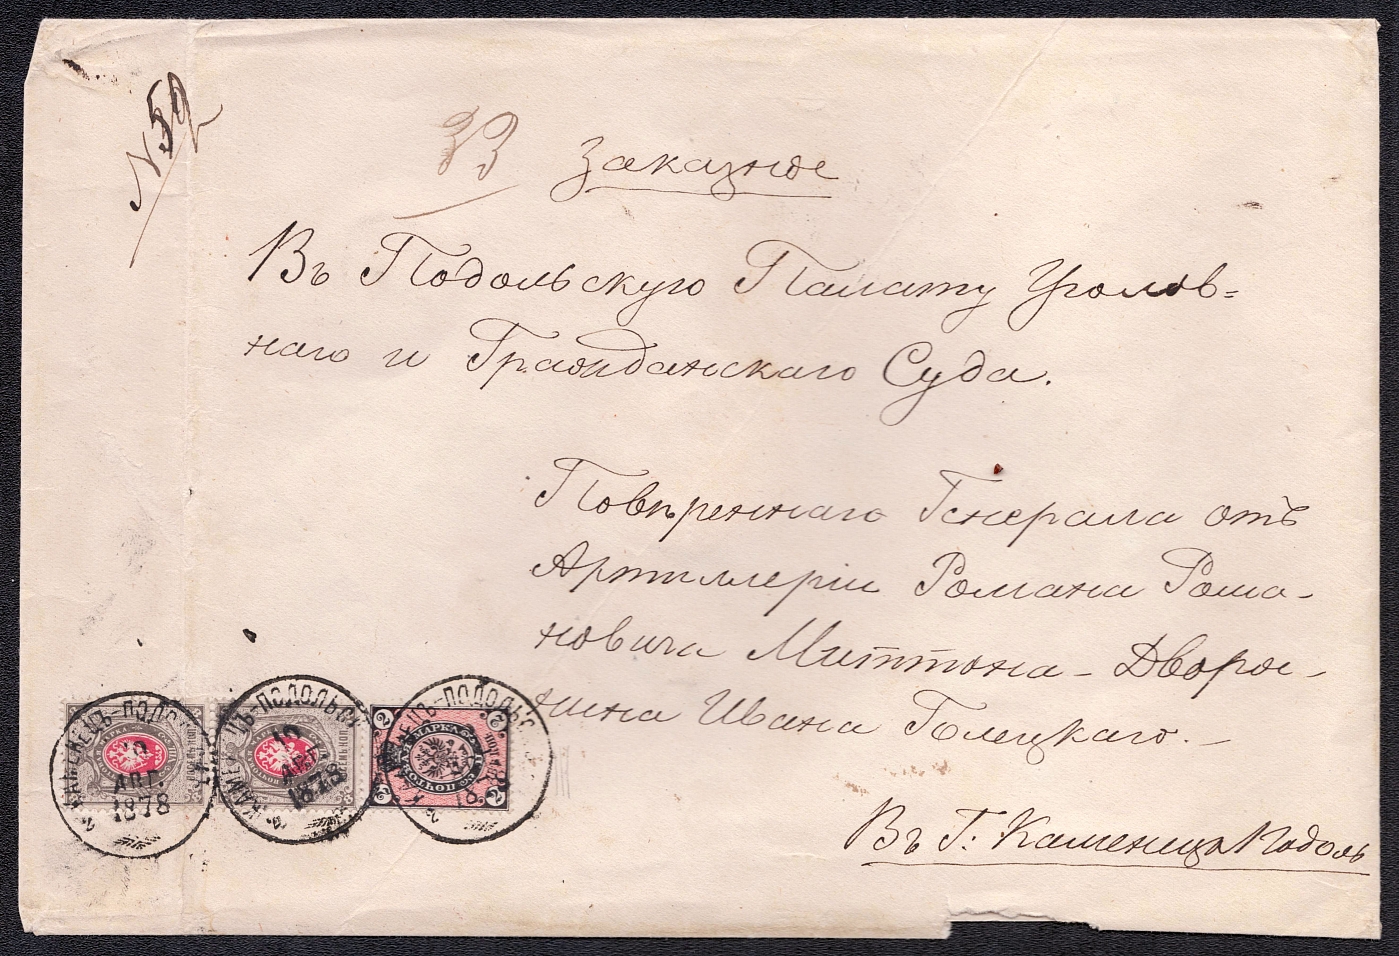 N 59
33 Заказное
Въ Подольскую Палату Уголов=
наго и Гражданскаго Суда.
Повѣреннаго Генерала отъ
Артиллеріи Романа Рома-
новича Миттона - Дворя-
нина Ивана Голецкаго.
Въ Г: Каменецъ Подоль
Г. КАМЕНЕЦЪ-ПОДО
10
АПР.
1878
Г. КАМЕНЕЦЪ-ПОДОЛЬСК
10
АПР.
1878
КАМЕНЕЦЪ-ПОДОЛЬС
МАРКА
2
2
2